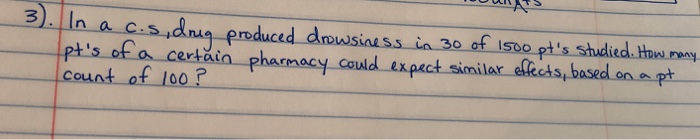 3). In a c.s, drug produced drowsiness in 30 of 1500 pt's studied. How many
pt's of a certain pharmacy could expect similar effects, based on a pt
count of 100?